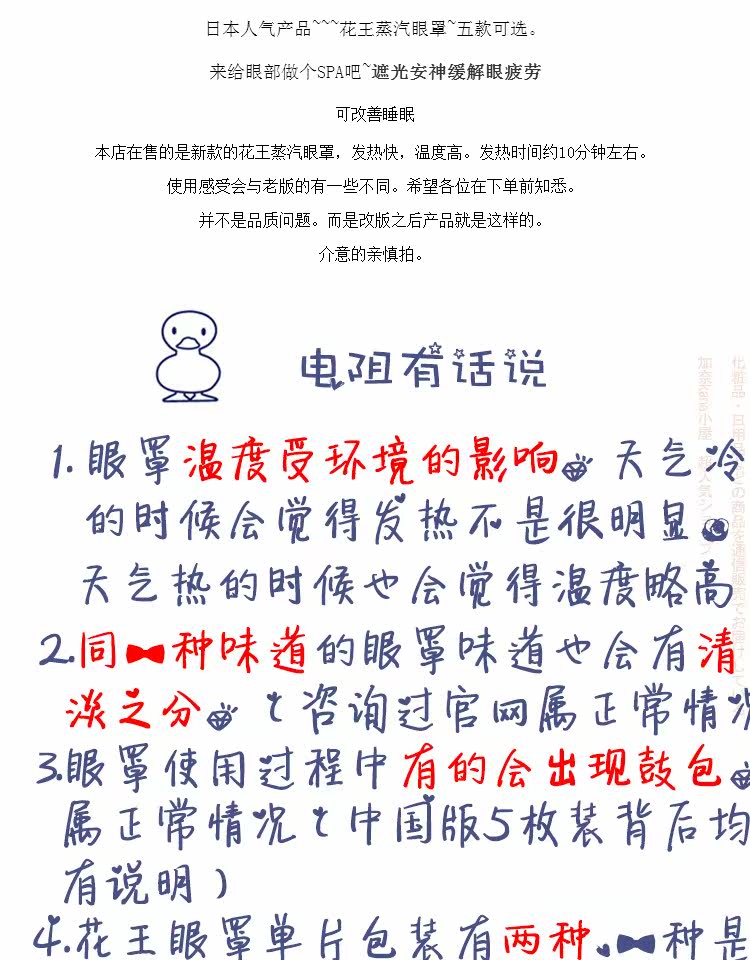 日本人气产品~~~花王蒸汽眼罩~五款可选。
来给眼部做个SPA吧~遮光安神缓解眼疲劳
可改善睡眠
本店在售的是新款的花王蒸汽眼罩，发热快，温度高。发热时间约10分钟左右。
使用感受会与老版的有一些不同。希望各位在下单前知悉。
并不是品质问题。而是改版之后产品就是这样的。
介意的亲慎拍。
电阻有话说
1.眼罩温度受环境的影响 天气冷
的时候会觉得发热不是很明显
天气热的时候也会觉得温度略高
2.同一种味道的眼罩味道也会有清
淡之分 (咨询过官网属正常情况
3.眼罩使用过程中有的会出现鼓包
属正常情况(中国版5枚装背后均
有说明)
4.花王眼罩单片包装有两种,一种是